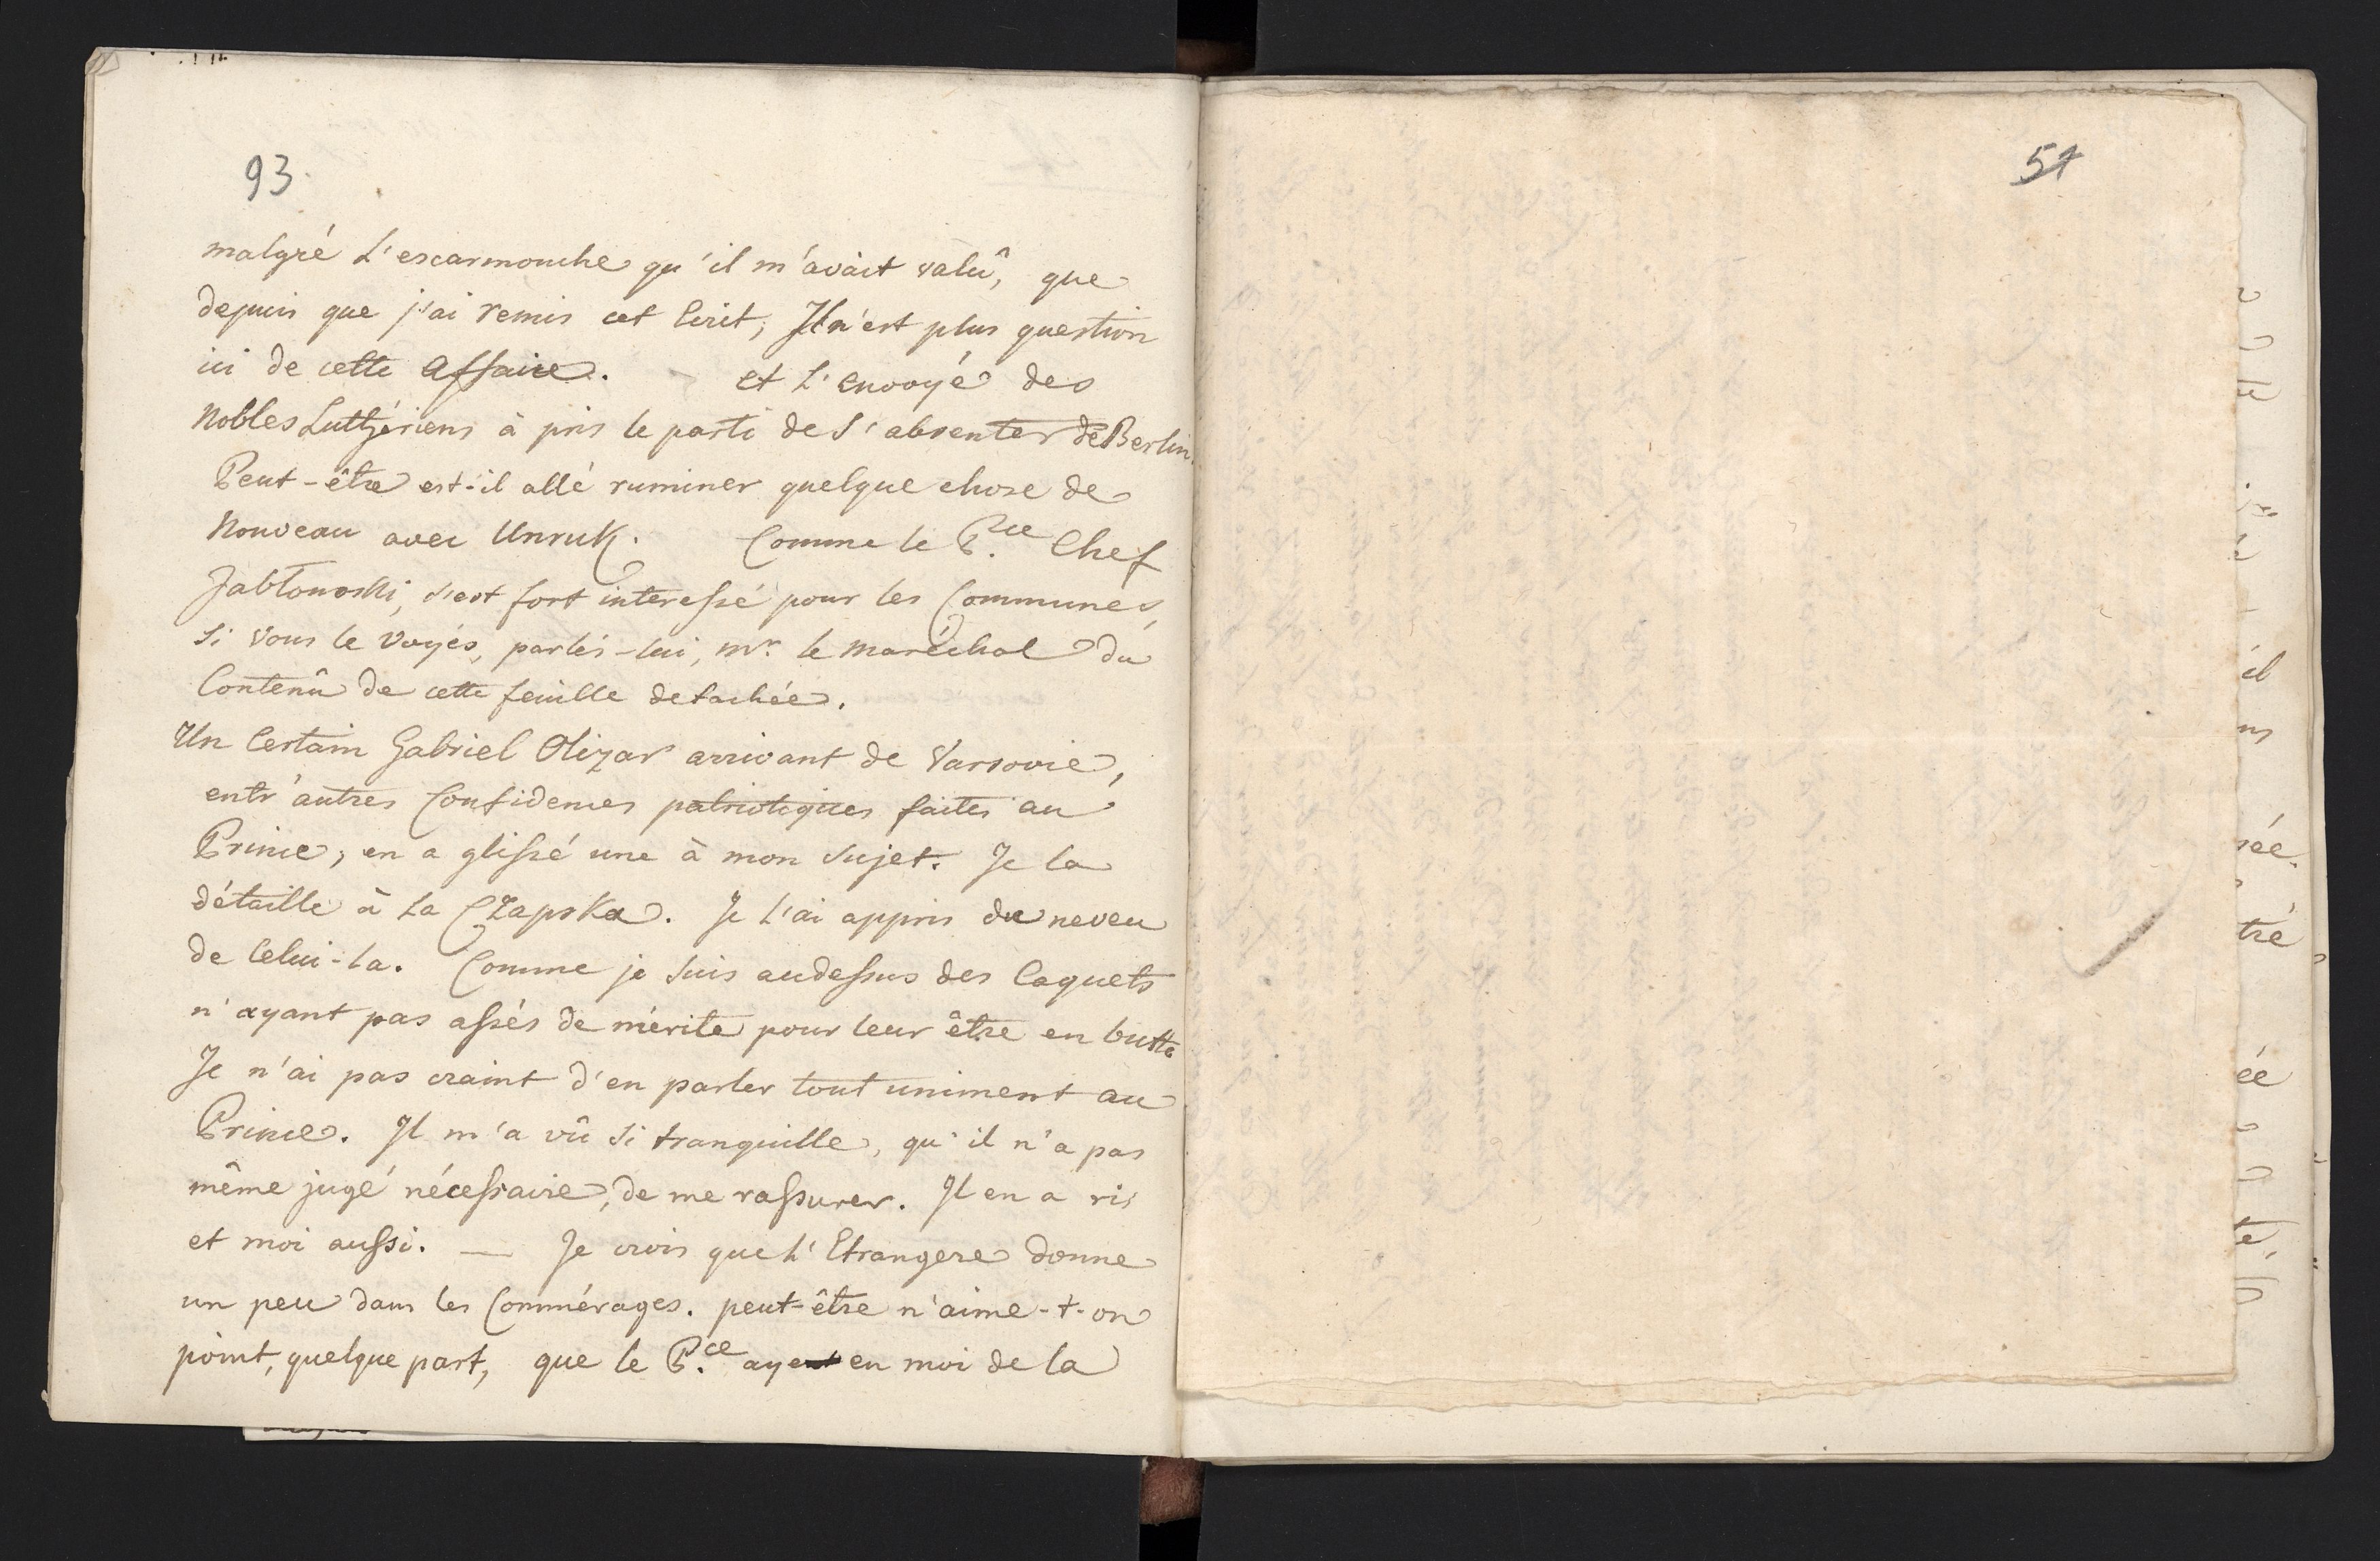 93.
malgré L'escarmouche qu'il m'avait valû, que
depuis que j'ai remis cet Ecrit, Il n'est plus question
ici de cette Affaire. et L'envoyé des
Nobles Luthériens à pris le parti de S'absenter de Berlin.
Peut-être est-il allé ruminer quelque chose de
Nouveau avec Unruh. Comme le P.ce Chef
Jabłonoski, s'est fort interessé pour les Communes,
Si vous le Voyés, parlés-lui, Mr. le Maréchal du
Contenû de cette feuille detachée.
Un Certain Gabriel Olizar arrivant de Varsovie,
entr'autres Confidences patriotiques faites au
Prince, en a glissé une à mon Sujet. Je la
détaille à La Czapska. Je l'ai appris du neveu
de Celui-la. Comme je suis audessus des Caquets
n'ayant pas assés de mérite pour leur être en butte
Je n'ai pas craint d'en parler tout uniment au
Prince. Il m'a vû si tranquille, qu'il n'a pas
même jugé nécessaire, de me rassurer. Il en a ri,
et moi aussi. — Je crois que L'Etrangere donne
un peu dans les Commérages. peut-être n'aime-t-on
point, quelque part, que le P.ce aye en moi de la
51
il
ns
sée.
tré
ée
te,